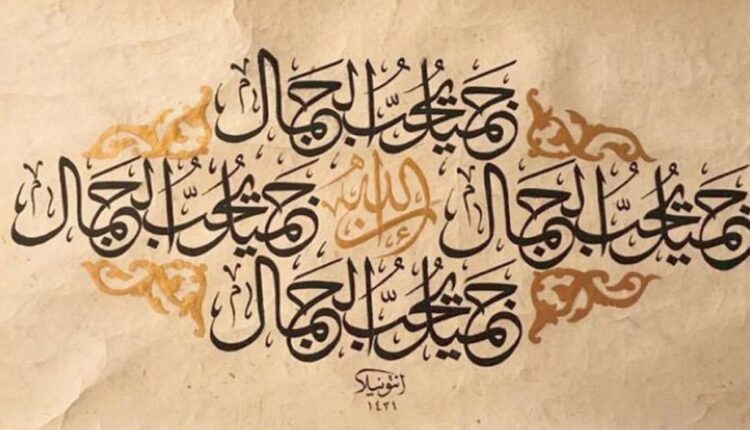 جميل يحبّ الجمال
جميل يحبّ الجمال إن الله جميل يحبّ الجمال
جميل يحبّ الجمال
انتونيلا
١٤٣١